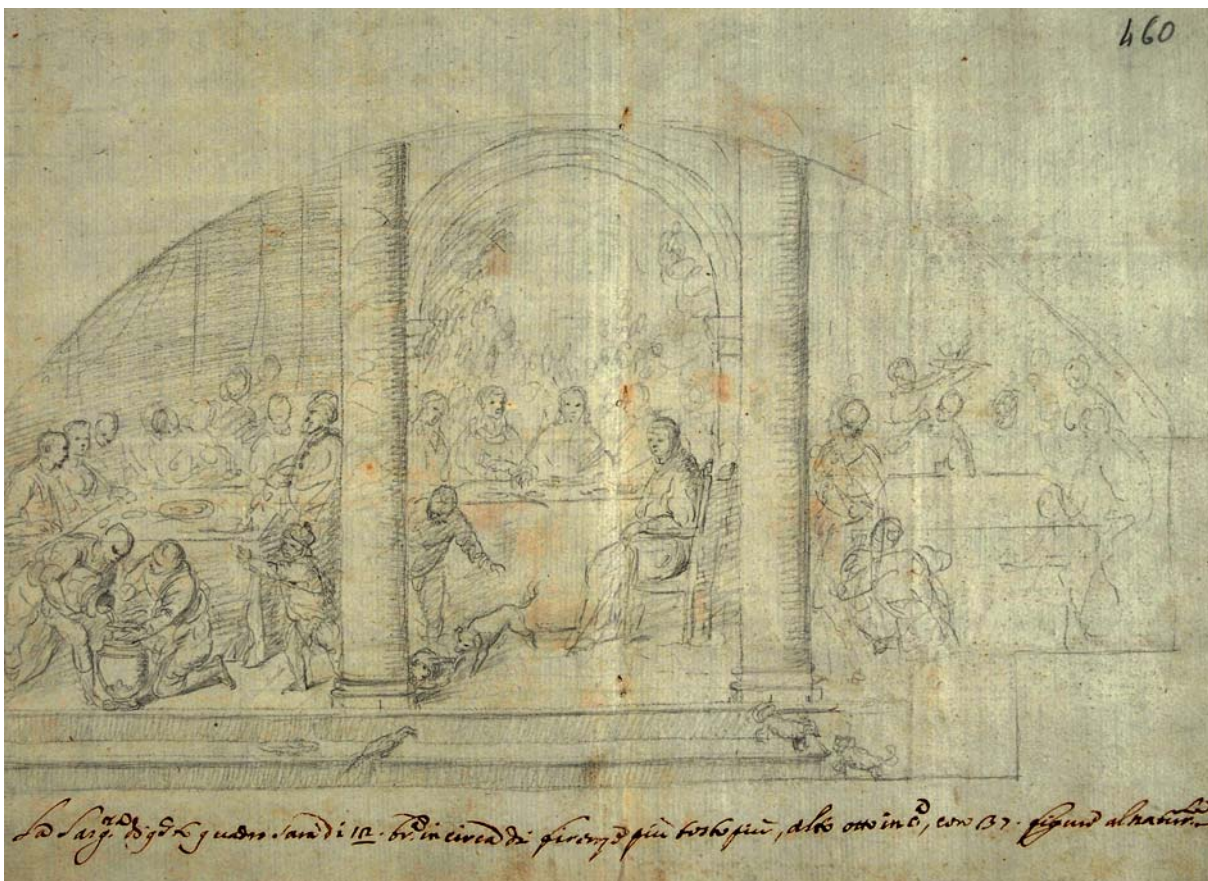 460
La Larg.za di q.to quadro sarà di 12. br.a in circa di firenze più tosto più, alto otto in c.a, con 37. figure al naturale